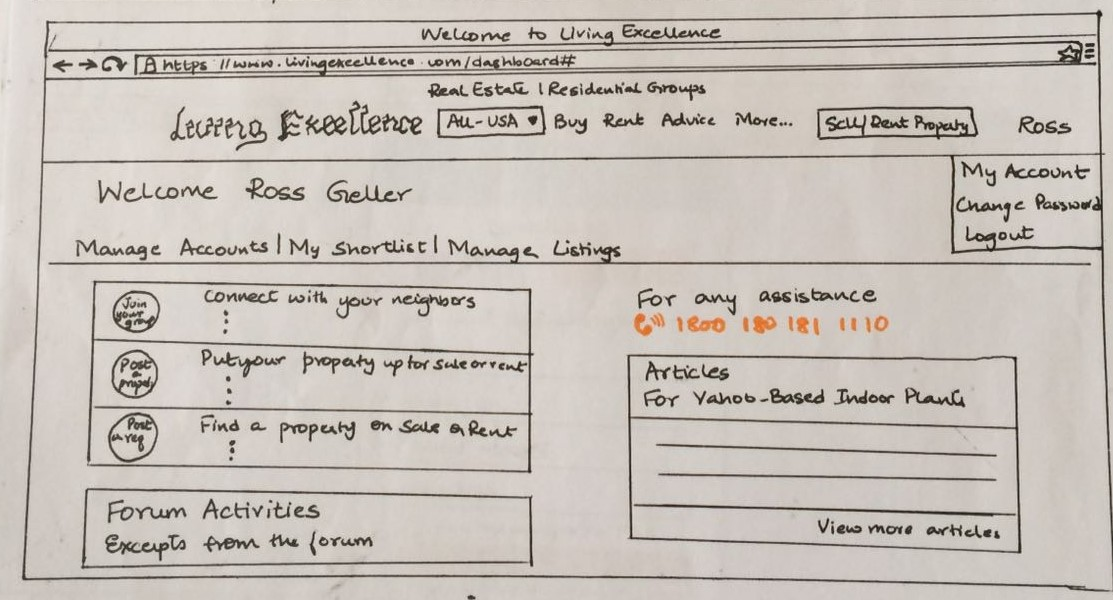 Welcome to Living Excellence
https://www.livingexcellence.com/dashboard#
Real Estate | Residential Groups
Living Excellence ALL-USA Buy Rent Advice More... Sell/Rent Property Ross
My Account
Change Password
Logout
Welcome Ross Geller
Manage Accounts | My Shortlist | Manage Listings
Join your group
Connect with your neighbors
Post a property
Put your property up for sale or rent
Post a req
Find a property on Sale or Rent
Forum Activities
Excepts from the forum
For any assistance
1800 180 181 1110
Articles
For Yahoo-Based Indoor Plants
View more articles